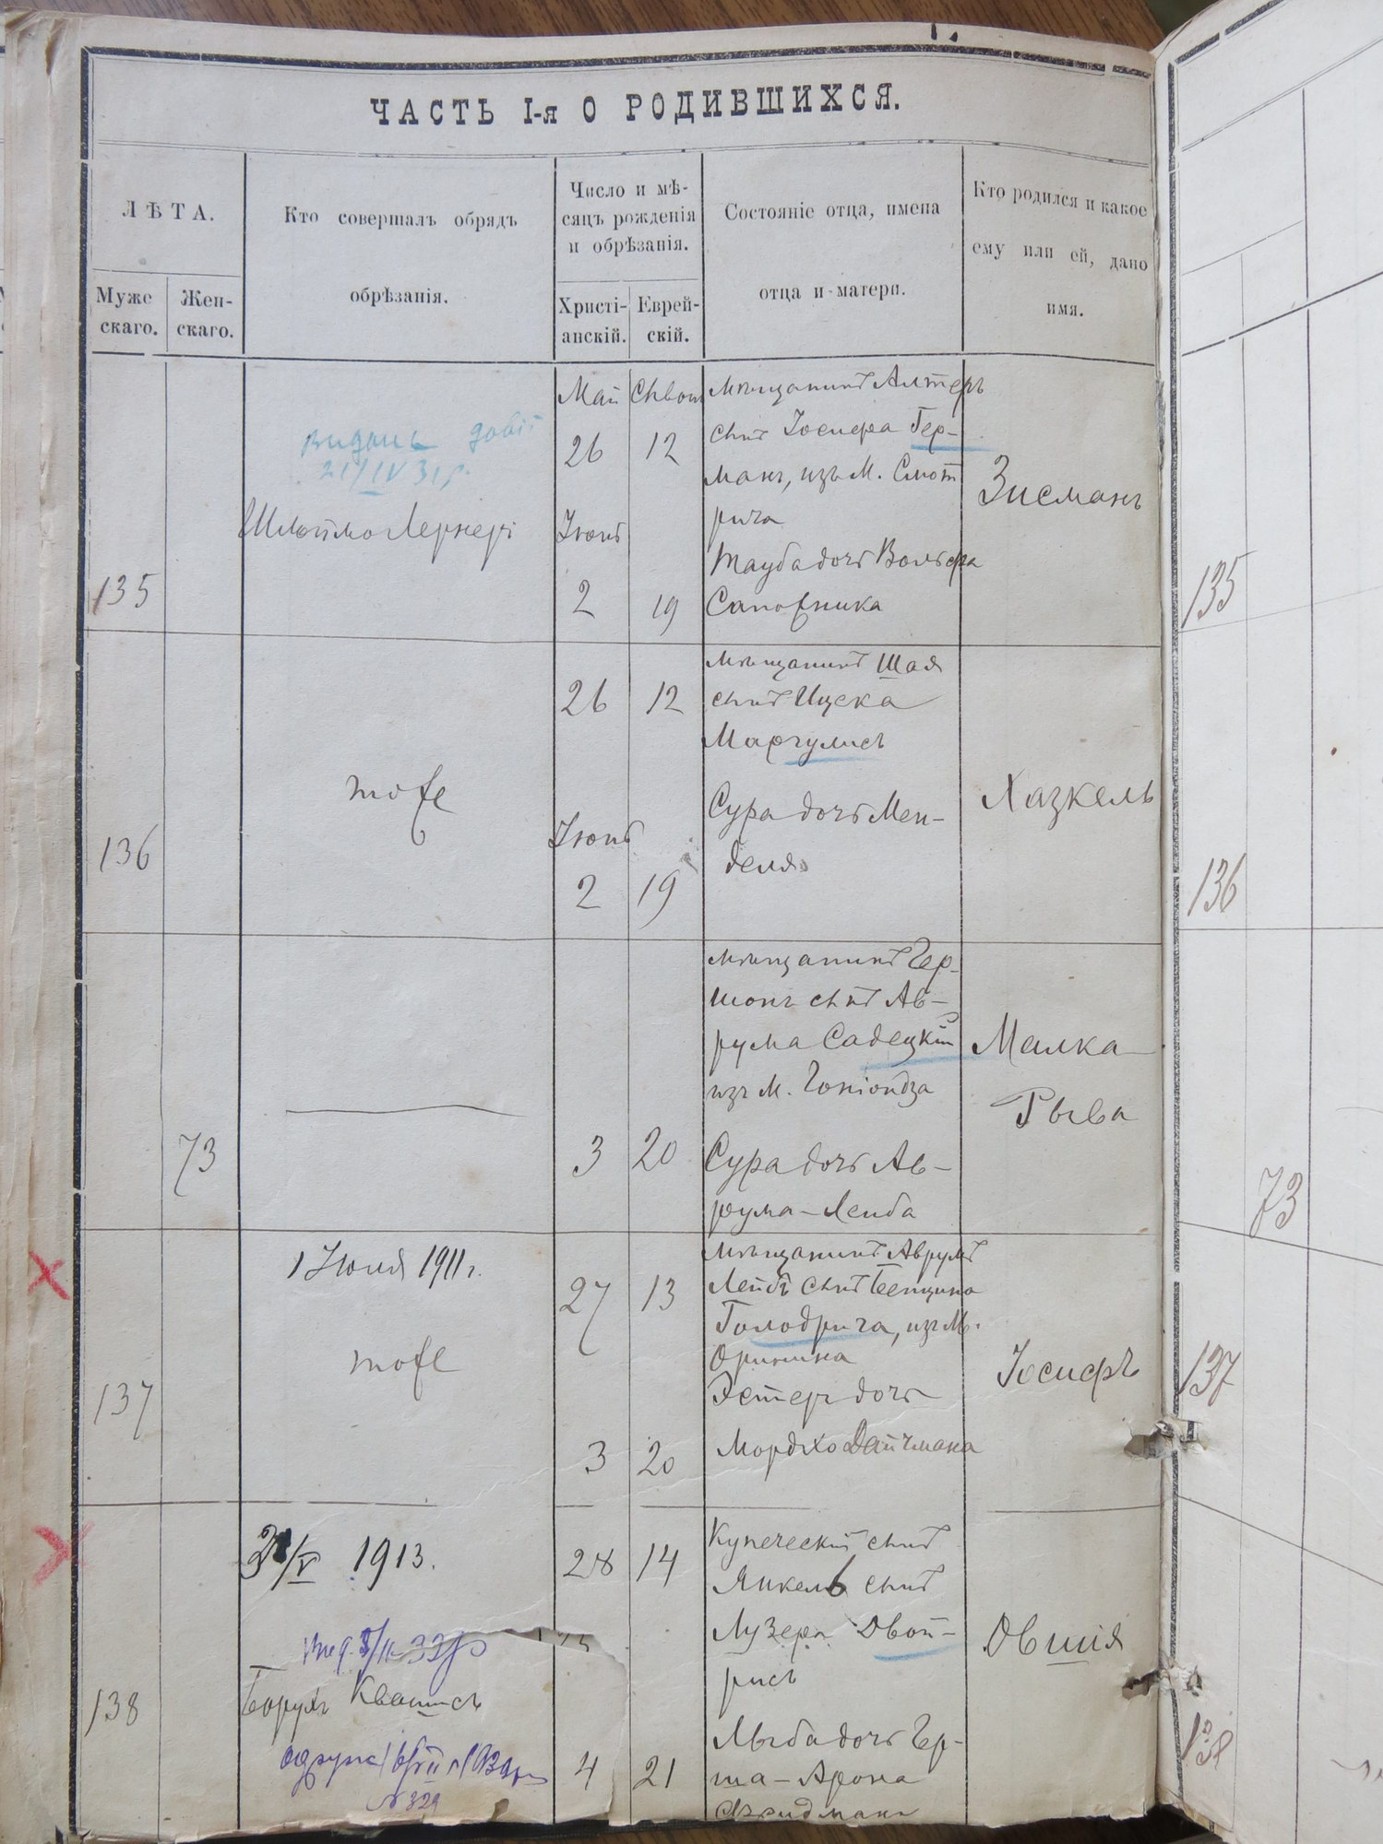 ЧАСТЬ I-я О РОДИВШИХСЯ.
ЛѢТА.
Муже
скаго.
Жен-
скаго.
Кто совершалъ обрядъ
обрѣзанія.
Число и мѣ-
сяцъ рожденія
и обрѣзанія.
Христі-
анскій.
Еврей-
скій.
Состояніе отца, имена
отца и матери.
Кто родился и какое
ему или ей, дано
имя.
135
21/IV 31 р.
Шлоймо Лернеръ
Май
26
Іюнь
2
12
19
мѣщанинъ Алтеръ
сынъ Іосифа Гер-
манъ, изъ М. Смот
рича
Тауба дочь Вольфа
Сапожника
Зисманъ
135
136
тоже
26
Іюнь
2
12
19
мѣщанинъ Шая
сынъ Ицека
Маргулисъ
Сура дочь Мен-
деля
Хазкель
136
73
3
20
мѣщанинъ Гер-
шонъ сынъ Ав-
рума Садецкій
изъ М. Гоніондза
Сура дочь Ав-
рума-Лейба
Малка
Рыва
73
1 Іюля 1911 г.
137
тоже
27
3
13
20
мѣщанинъ Аврумъ
Лейбъ сынъ Бенціона
Голодрига, изъ М.
Оринина
Эстеръ дочь
Мордхо Дайчмана
Іосифъ
137
1913.
138
Борухъ Квашисъ
№ 329
28
4
14
21
Купеческій сынъ
Янкель сынъ
Лузера Двой-
рисъ
Лыба дочь Гер-
ша-Арона
Фридманъ
Овшія
138